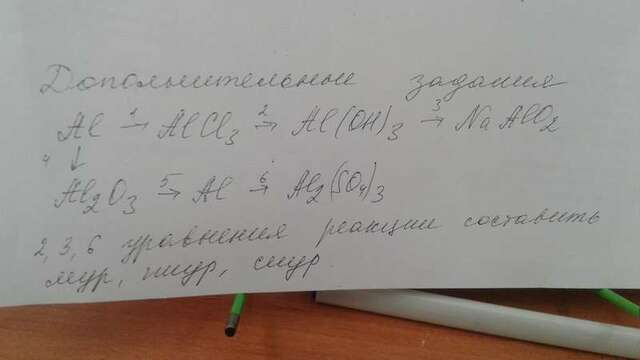 Дополнительные задания
Al 1→ AlCl3 2→ Al(OH)3 3→ NaAlO2
4 ↓
Al2O3 5→ Al 6→ Al2(SO4)3
2, 3, 6 уравнения реакции составить
мур, пиур, сиур.